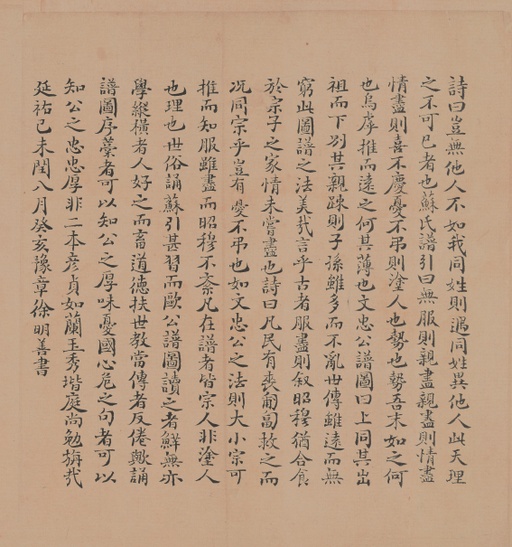 詩曰豈無他人不如我同姓則遇同姓異他人此天理
之不可已者也蘇氏譜引曰無服則親盡親盡則情盡
情盡則喜不慶憂不弔則塗人也勢也勢吾末如之何
也烏虖推而遠之何其薄也文忠公譜圖曰上同其出
祖而下別其親踈則子孫雖多而不亂世傳雖遠而無
窮此圖譜之法美哉言乎古者服盡則叙昭穆猶合食
於宗子之家情未嘗盡也詩曰凡民有喪匍匐救之而
况同宗乎豈有憂不弔也如文忠公之法則大小宗可
推而知服雖盡而昭穆不紊凡在譜者皆宗人非塗人
也理也世俗誦蘇引甚習而歐公譜圖讀之者鮮無亦
學縱橫者人好之而畜道德扶世教當傳者反倦歟誦
譜圖序藁者可以知公之厚味憂國心危之句者可以
知公之忠忠厚非二本彦貞如蘭玉秀堦庭尚勉旃哉
延祐己未閏八月癸亥豫章徐明善書